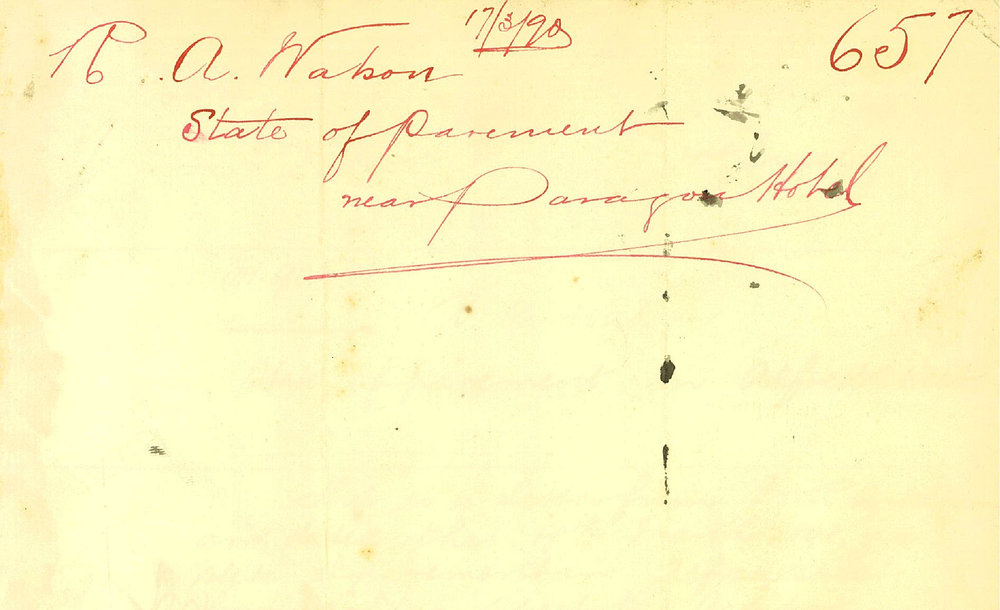 R. A. Watson 17/3/90 657
State of Pavement
near Paragon Hotel